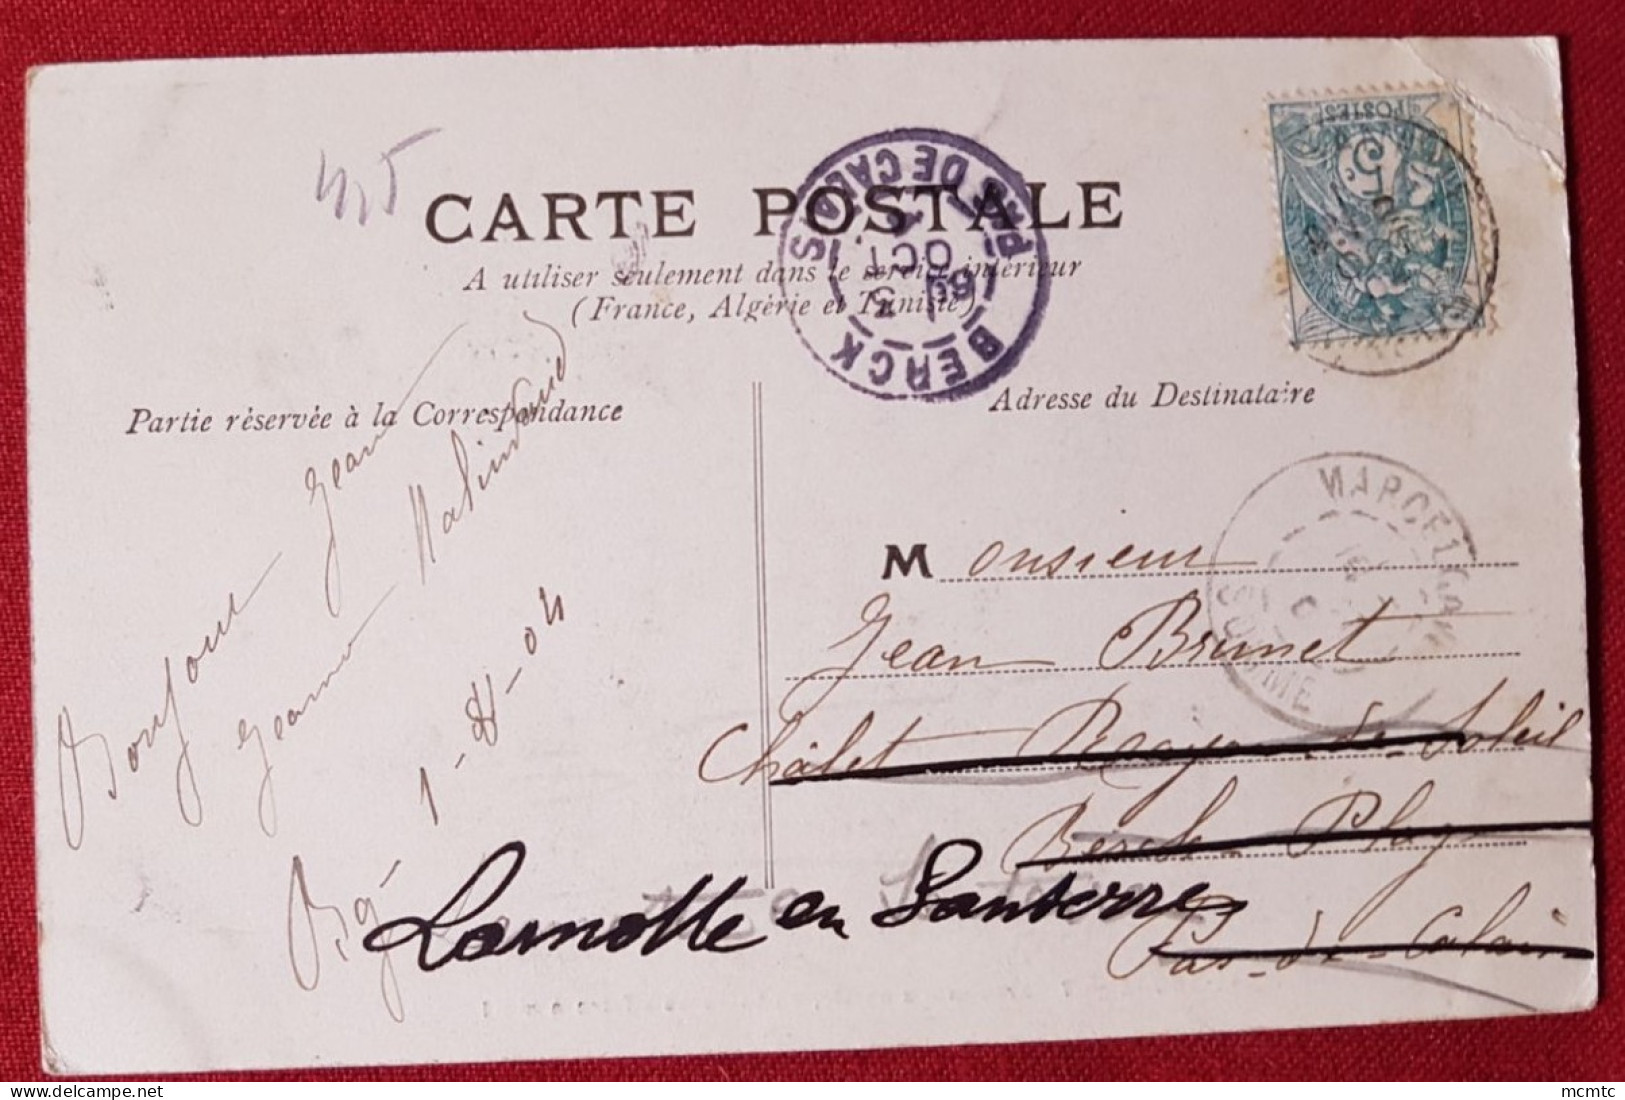 CARTE POSTALE
A utiliser seulement dans le service intérieur
(France, Algérie et Tunisie)
BERCK
PAS DE CALAIS
3
OCT
POSTES
5
Partie réservée à la Correspondance
Adresse du Destinataire
Bonjour Jean
Jeanne
MARCELCAVE
SOMME
Monsieur
Jean Brunet
Châlet Rayon-de-Soleil
Berck Plage
Pas-de-Calais
Lamotte en Santerre
mcmtc